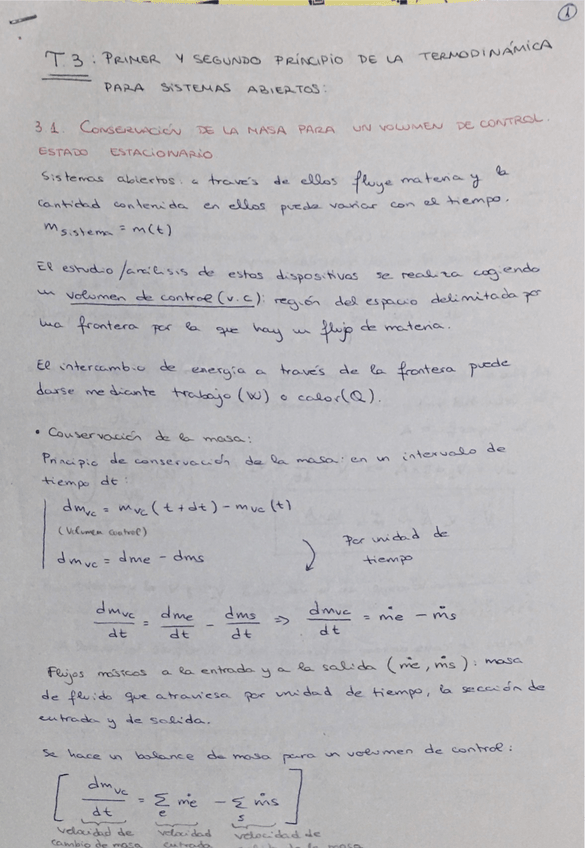 1
T3: PRIMER Y SEGUNDO PRINCIPIO DE LA TERMODINÁMICA
PARA SISTEMAS ABIERTOS:
3.1. CONSERVACIÓN DE LA MASA PARA UN VOLUMEN DE CONTROL.
ESTADO ESTACIONARIO
Sistemas abiertos: a través de ellos fluye materia y la
cantidad contenida en ellos puede variar con el tiempo.
m sistema = m(t)
El estudio/análisis de estos dispositivos se realiza cogiendo
un volumen de control (v.c): región del espacio delimitada por
una frontera por la que hay un flujo de materia.
El intercambio de energía a través de la frontera puede
darse mediante trabajo (W) o calor (Q).
• Conservación de la masa:
Principio de conservación de la masa: en un intervalo de
tiempo dt:
dm_vc = m_vc (t + dt) - m_vc (t)
(Volumen control)
dm_vc = dme - dms
Por unidad de
tiempo
dm_vc/dt = dme/dt - dms/dt ⇒ dm_vc/dt = ṁe - ṁs
Flujos másicos a la entrada y a la salida (ṁe, ṁs): masa
de fluido que atraviesa por unidad de tiempo, la sección de
entrada y de salida.
Se hace un balance de masa para un volumen de control:
[dm_vc/dt = Σ_e ṁe - Σ_s ṁs]
velocidad de velocidad velocidad de
cambio de masa entrada la masa